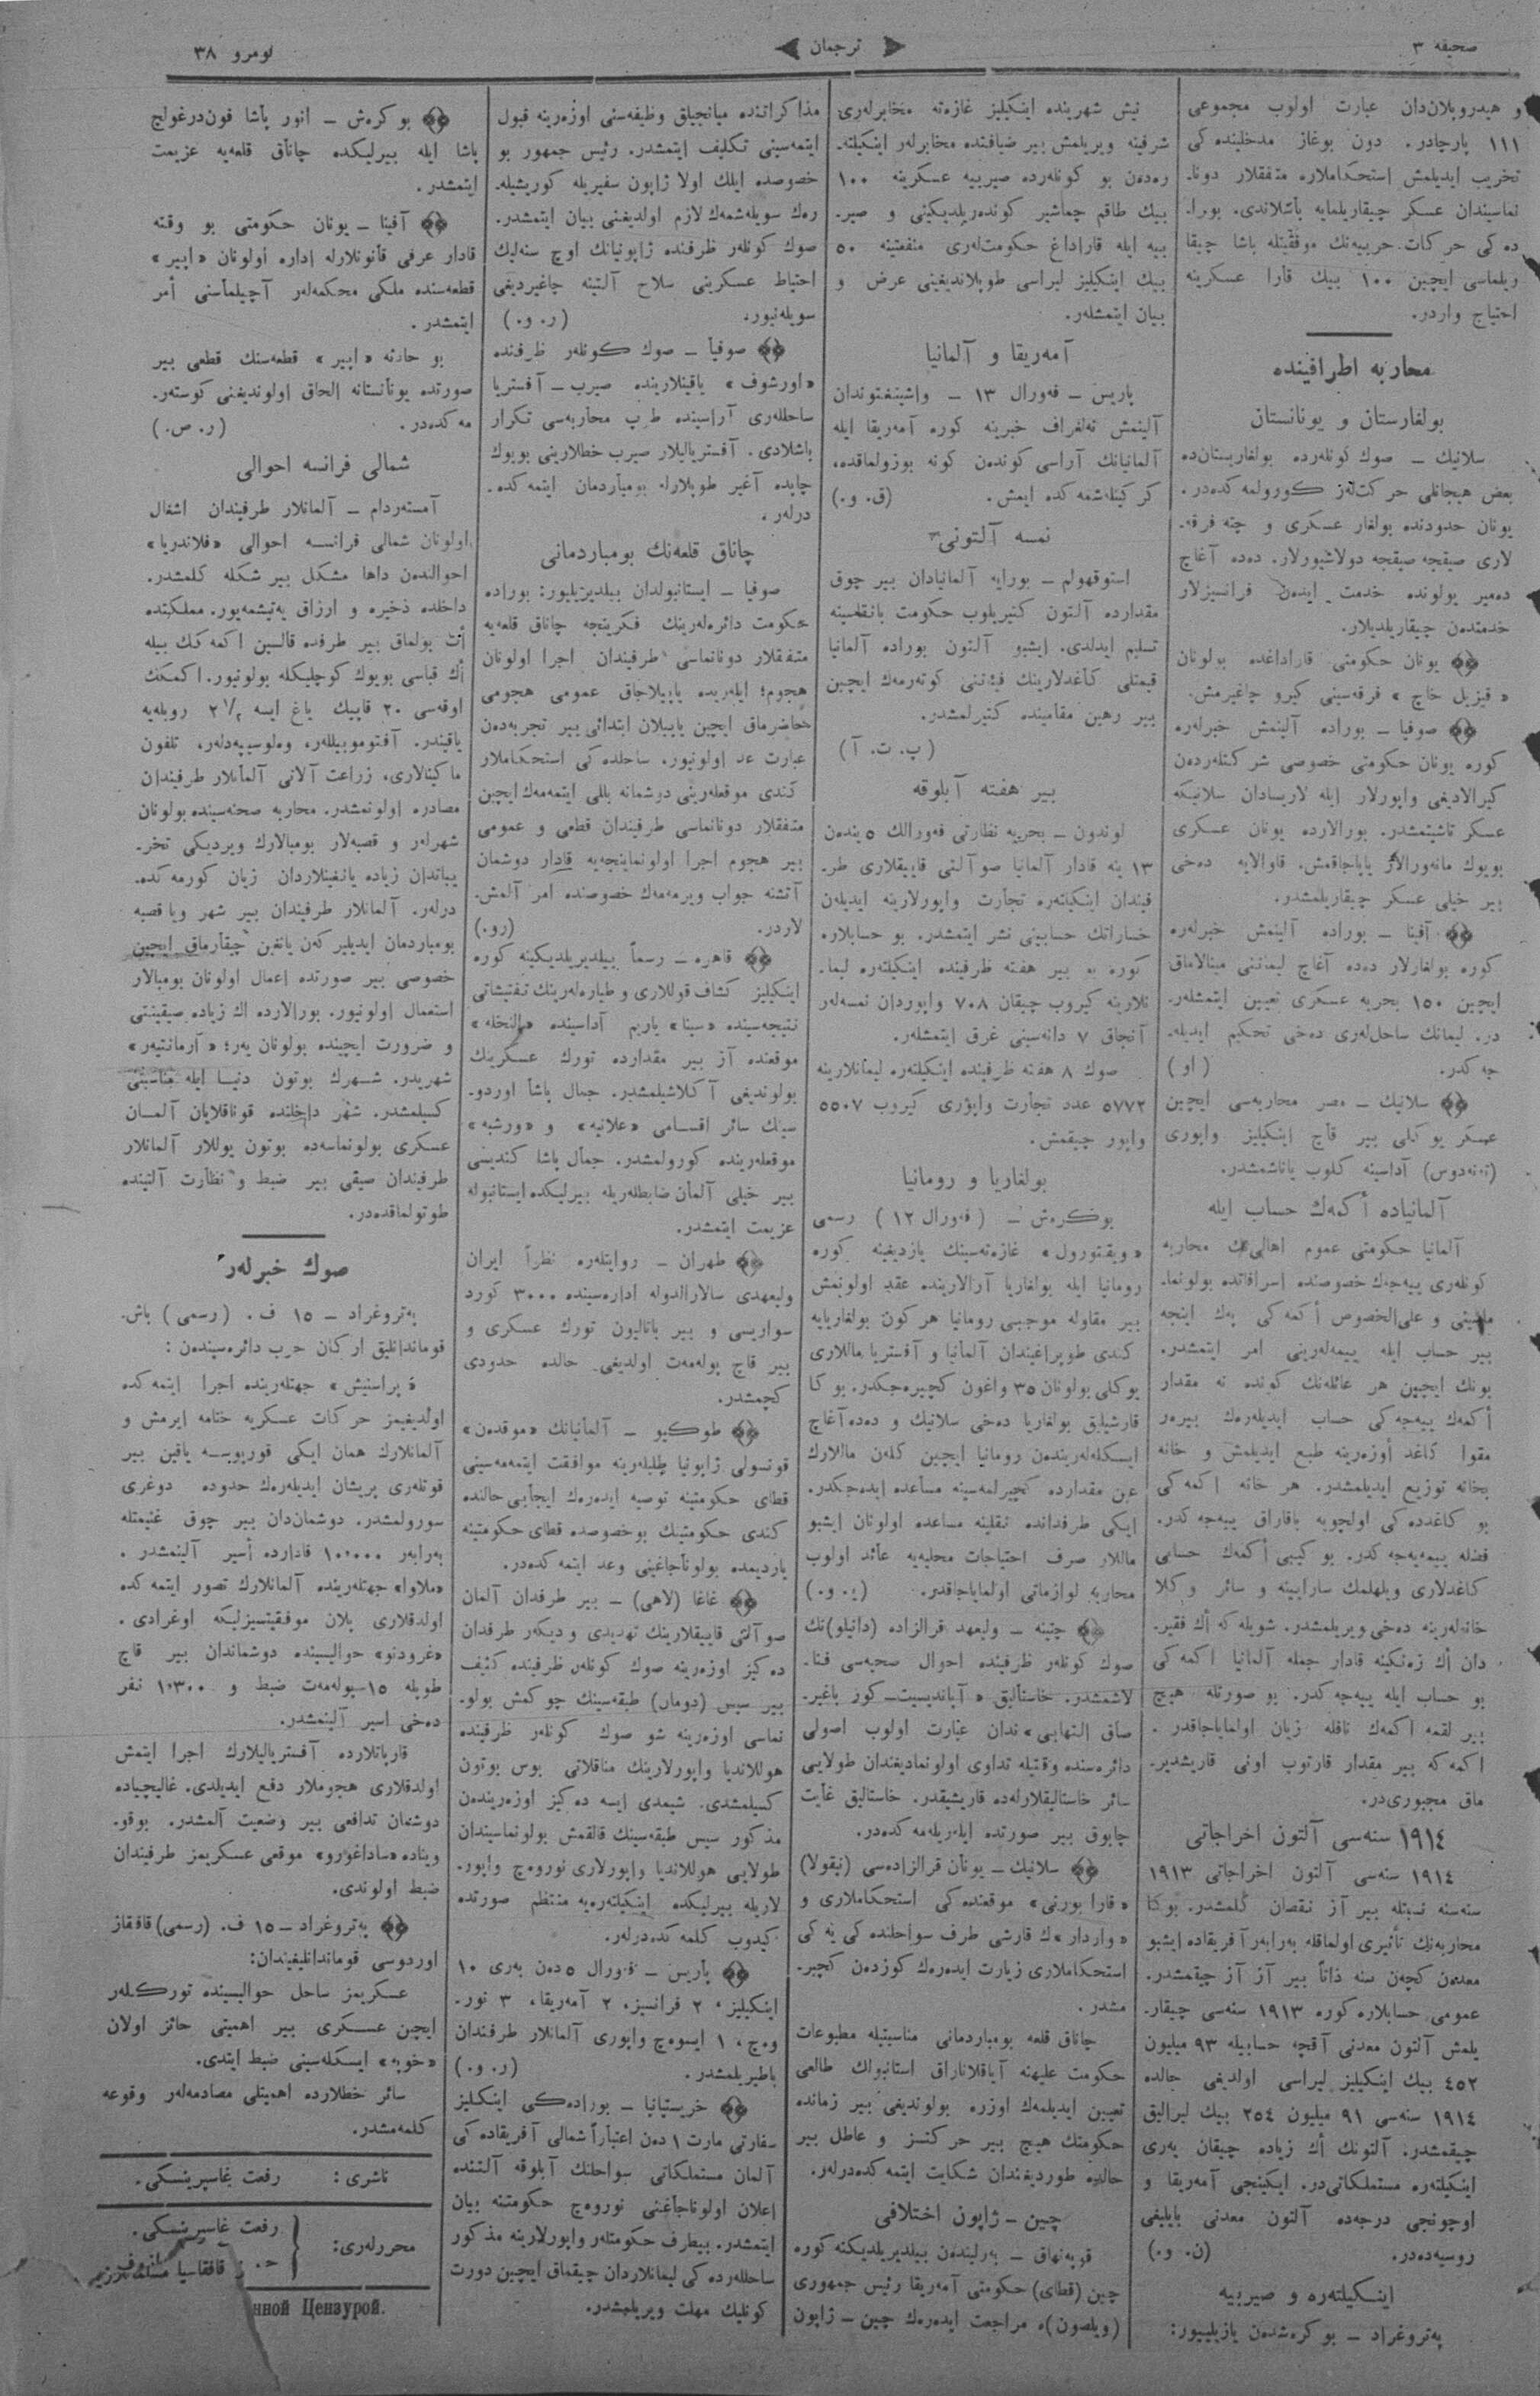 صحیفه ٣
ترجمان
نومرو ٣٨
و هیدروپلان‌دان عبارت اولوب مجموعی
١١١ پارچادر. دون بوغاز مدخلینده کی
تخریب ایدیلمش استحکاملاره متفقلار دونا-
نماسیندان عسکر چیقاریلمایه باشلاندی. بورا-
ده کی حرکات حربیه‌نك موفقیتله باشا چیقا
ریلماسی ایچین ١٠٠ بیك قارا عسکرینه
احتیاج واردر.
محاربه اطرافینده
بولغارستان و یونانستان
سلانیك – صوك کونلرده بولغارستان‌ده
بعض هیجانلی حرکت‌لر کورولمه کده‌در.
یونان حدودنده بولغار عسکری و چته فرقه-
لاری صیقجه صیقجه دولاشیورلار. دده آغاج
دمیر یولونده خدمت ایدن فرانسیزلار
خدمتدن چیقاریلدیلار.
یونان حکومتی قاراداغده بولونان
« قیزیل خاچ » فرقه‌سینی کیرو چاغیرمش.
صوفیا – بوراده آلینمش خبرلره
کوره یونان حکومتی خصوصی شرکتلردن
کیرالادیغی واپورلار ایله لاریسادان سلانیکه
عسکر تاشیتمشدر. بورالارده یونان عسکری
بویوك مانه‌ورالار یاپاجاقمش. قاوالایه دخی
بیر خیلی عسکر چیقاریلمشدر.
آفینا – بوراده آلینمش خبرلره
کوره بولغارلار دده آغاج لیماننی مینالاماق
ایچین ١٥٠ بحریه عسکری تعیین ایتمشلر-
در. لیمانك ساحل‌لری دخی تحکیم ایدیله-
جه کدر. (او)
سلانیك – مصر محاربه‌سی ایچین
عسکر یوکلی بیر قاچ اینکیلیز واپوری
(تنه‌دوس) آداسینه کلوب یاناشمشدر.
آلمانیاده أکمك حساب ایله
آلمانیا حکومتی عموم اهالی‌نك محاربه
کونلری ییه‌جك خصوصنده إسرافاتده بولونما-
ماسینی و علی‌الخصوص أکمه کی پك اینجه
بیر حساب ایله ییمه‌لرینی امر ایتمشدر.
بونك ایچین هر عائله‌نك کونده نه مقدار
أکمك ییه‌جه کی حساب ایدیله‌رك بیرر
مقوا کاغد اوزرینه طبع ایدیلمش و خانه
بخانه توزیع ایدیلمشدر. هر خانه اکمه کی
بو کاغدده کی اولچویه باقاراق ییه‌جه کدر.
فضله ییمه‌یه‌جه کدر. بو کیبی أکمك حسابی
کاغدلاری ویلهلمك سارایینه و سائر وکلا
خانه‌لرینه دخی ویریلمشدر. شویله که أك فقیر-
دان أك زنکینه قادار جمله آلمانیا اکمه کی
بو حساب ایله ییه‌جه کدر. بو صورتله هیچ
بیر لقمه اکمك نافله زیان اولمایاجاقدر.
اکمه که بیر مقدار قارتوب اونی قاریشدیر-
ماق مجبوری‌در.
١٩١٤ سنه‌سی آلتون اخراجاتی
١٩١٤ سنه‌سی آلتون اخراجاتی ١٩١٣
سنه‌سنه نسبتله بیر آز نقصان کلمشدر. بوکا
محاربه‌نك تأثیری اولماقله برابر آفریقاده ایشبو
معدن کچن سنه ذاتاً بیر آز آز چیقمشدر.
عمومی حسابلاره کوره ١٩١٣ سنه‌سی چیقار-
یلمش آلتون معدنی آقچه حسابیله ٩٣ میلیون
٤٥٢ بیك اینکیلیز لیراسی اولدیغی حالده
١٩١٤ سنه‌سی ٩١ میلیون ٢٥٤ بیك لیرالیق
چیقمشدر. آلتونك أك زیاده چیقان یری
اینکیلتره مستملکاتی‌در. ایکینجی آمریقا و
اوچونجی درجه‌ده آلتون معدنی بایلیغی
روسیه‌ده‌در. (ن. و.)
اینکیلتره و صیربیه
پتروغراد – بوکره‌شدن یازیلییور:
نیش شهرینده اینکیلیز غازه‌ته مخابرلری
شرفینه ویریلمش بیر ضیافتده مخابرلر اینکیلته-
ره‌دن بو کونلرده صیربیه عسکرینه ١٠٠
بیك طاقم چماشیر کوندریلدیکینی و صیر-
بیه ایله قاراداغ حکومت‌لری منفعتینه ٥٠
بیك اینکیلیز لیراسی طوپلاندیغینی عرض و
بیان ایتمشلر.
آمریقا و آلمانیا
پاریس – فورال ١٣ – واشینغتوندان
آلینمش تلغراف خبرینه کوره آمریقا ایله
آلمانیانك آراسی کوندن کونه بوزولماقده،
کرکینلشمه کده ایمش. (ق. و.)
نمسه آلتونی
استوقهولم – بورایه آلمانیادان بیر چوق
مقدارده آلتون کتیریلوب حکومت بانقه‌سینه
تسلیم ایدلدی. ایشبو آلتون بوراده آلمانیا
قیمتلی کاغدلارینك فیئتنی کوتەرمك ایچین
بیر رهین مقامینده کتیرلمشدر.
(پ. ت. آ)
بیر هفته آبلوقه
لوندون – بحریه نظارتی فورالك ٥ یندن
١٣ ینه قادار آلمانیا صو آلتی قاییقلاری طر-
فیندان اینکیلتره تجارت واپورلارینه ایدیلن
خساراتك حسابینی نشر ایتمشدر. بو حسابلاره
کوره بو بیر هفته ظرفینده اینکیلتره لیما-
نلارینه کیروب چیقان ٧٠٨ واپوردان نمسه‌لر
آنجاق ٧ دانه‌سینی غرق ایتمشلر.
صوك ٨ هفته ظرفینده اینکیلتره لیمانلارینه
٥٧٧٢ عدد تجارت واپوری کیروب ٥٥٠٧
واپور چیقمش.
بولغاریا و رومانیا
بوخکره‌ش – (فورال ١٢) رسمی
«ویقتورول» غازه‌ته‌سینك یازدیغینه کوره
رومانیا ایله بولغاریا آرالارینده عقد اولونمش
بیر مقاوله موجبی رومانیا هر کون بولغاریایه
کندی طوپراغیندان آلمانیا و آفستریا ماللاری
یوکلی بولونان ٣٥ واغون کچیره‌جکدر. بوکا
قارشیلیق بولغاریا دخی سلانیك و دده آغاج
ایسکله‌لریندن رومانیا ایچین کلن ماللارك
عین مقدارده کچیرلمه‌سینه مساعده ایده‌جکدر.
ایکی طرفدانده نقلینه مساعده اولونان ایشبو
ماللار صرف احتیاجات محلیه‌یه عائد اولوب
محاربه لوازماتی اولمایاجاقدر. (ر. و.)
چتینه – ولیعهد قرالزاده (دانیلو)نك
صوك کونلر ظرفینده احوال صحیه‌سی فنا-
لاشمشدر. خاستالیق «آپاندیسیت – کور باغیر-
صاق التهابی»ندان عبارت اولوب اصولی
دائره‌سنده وقتیله تداوی اولونمادیغندان طولایی
سائر خاستالیقلارله‌ده قاریشیقدر. خاستالیق غایت
چابوق بیر صورتده ایلریله‌مه کده‌در.
سلانیك – یونان قرالزاده‌سی (نیقولا)
«قارا بورنی» موقعنده کی استحکاملاری و
«واردار»ك قارشی طرف سواحلنده کی یه کی
استحکاملاری زیارت ایده‌رك کوزدن کچیر-
مشدر.
چاناق قلعه بومباردمانی مناسبتیله مطبوعات
حکومت علیهنه آیاقلاناراق استانبولك طالعی
تعیین ایدیلمك اوزره بولوندیغی بیر زمانده
حکومتك هیچ بیر حرکتسز و عاطل بیر
حالده طوردیغندان شکایت ایتمه کده‌درلر.
چین – ژاپون اختلافی
قوپه‌نهاق – برلیندن بیلدیریلدیکنه کوره
چین (قطای) حکومتی آمریقا رئیس جمهوری
(ویلصون)ه مراجعت ایده‌رك چین – ژاپون
مذاکراتنده میانجیلق وظیفه‌سنی اوزرینه قبول
ایتمه‌سینی تکلیف ایتمشدر. رئیس جمهور بو
خصوصده ایلك اولا ژاپون سفیریله کوریشیله-
رك سویله‌شمك لازم اولدیغنی بیان ایتمشدر.
صوك کونلر ظرفنده ژاپونیانك اوچ سنه‌لیك
احتیاط عسکرینی سلاح آلتینه چاغیردیغی
سویله‌نیور. (ر. و.)
صوفیا – صوك کونلر ظرفنده
«اورشوف» یاقینلارینده صیرب – آفستریا
ساحللری آراسینده طوپ محاربه‌سی تکرار
باشلادی. آفستریالیلار صیرب خطلارینی بویوك
چاپده آغیر طوپلارله بومباردمان ایتمه کده-
درلر.
چاناق قلعه‌نك بومباردمانی
صوفیا – ایستانبولدان بیلدیریلیور: بوراده
حکومت دائره‌لرینك فکرینجه چاناق قلعه‌یه
متفقلار دونانماسی طرفیندان اجرا اولونان
هجوم؛ ایلریده یاپیلاجاق عمومی هجومی
حاضرماق ایچین یاپیلان ابتدائی بیر تجربه‌دن
عبارت عد اولونیور. ساحلده کی استحکاملار
کندی موقعلرینی دوشمانه بللی ایتمه‌مك ایچین
متفقلار دونانماسی طرفیندان قطعی و عمومی
بیر هجوم اجرا اولونماینجه‌یه قادار دوشمان
آتشنه جواب ویرمه‌مك خصوصنده امر آلمش-
لاردر. (رو.)
قاهره – رسماً بیلدیریلدیکینه کوره
اینکیلیز کشاف قوللاری و طیاره‌لرینك تفتیشاتی
نتیجه‌سینده «سینا» یاریم آداسینده «النخله»
موقعنده آز بیر مقدارده تورك عسکرینك
بولوندیغی آکلاشیلمشدر. جمال پاشا اوردو-
سینك سائر اقسامی «علانیه» و «ورشبه»
موقعلرینده کورولمشدر. جمال پاشا کندیسی
بیر خیلی آلمان ضابطلریله بیرلیکده ایستانبوله
عزیمت ایتمشدر.
طهران – روایتلره نظراً ایران
ولیعهدی سالارالدوله اداره‌سینده ٣٠٠٠ کورد
سواریسی و بیر باتالیون تورك عسکری و
بیر قاچ پولمه‌ت اولدیغی حالده حدودی
کچمشدر.
طوکیو – آلمانیانك «موقدن»
قونسولی ژاپونیا طلبلرینه موافقت ایتمه‌مه‌سینی
قطای حکومتینه توصیه ایده‌رك ایجابی حالنده
کندی حکومتینك بو خصوصده قطای حکومتینه
یاردیمده بولوناجاغینی وعد ایتمه کده‌در.
غاغا (لاهی) – بیر طرفدان آلمان
صو آلتی قاییقلارینك تهدیدی و دیکر طرفدان
ده کیز اوزرینه صوك کونلر ظرفینده کثیف
بیر سیس (دومان) طبقه‌سینك چوکمش بولو-
نماسی اوزرینه شو صوك کونلر ظرفینده
هوللاندیا واپورلارینك مناقلاتی بوس بوتون
کسیلمشدی. شیمدی ایسه ده کیز اوزریندن
مذکور سیس طبقه‌سینك قالقمش بولونماسیندان
طولایی هوللاندیا واپورلاری نوروه‌ج واپور-
لاریله بیرلیکده اینکیلتره‌یه منتظم صورتده
کیدوب کلمه کده‌درلر.
پاریس – فورال ٥ دن بری ١٠
اینکیلیز، ٢ فرانسیز، ٢ آمریقا، ٣ نور-
وه‌ج، ١ ایسوه‌ج واپوری آلمانلار طرفندان
باطیریلمشدر. (ر. و.)
خریستیانیا – بوراده‌کی اینکیلیز
سفارتی مارت ١ دن اعتباراً شمالی آفریقاده کی
آلمان مستملکاتی سواحلنك آبلوقه آلتنده
إعلان اولوناجاغنی نوروه‌ج حکومتنه بیان
ایتمشدر. بیطرف حکومتلر واپورلارینه مذکور
ساحللرده کی لیمانلاردان چیقماق ایچین دورت
کونلیك مهلت ویریلمشدر.
بوکره‌ش – انور پاشا فون‌درغولج
پاشا ایله بیرلیکده چاناق قلعه‌یه عزیمت
ایتمشدر.
آفینا – یونان حکومتی بو وقته
قادار عرفی قانونلارله اداره اولونان «اپیر»
قطعه‌سنده ملکی محکمه‌لر آچیلماسنی أمر
ایتمشدر.
بو حادثه «اپیر» قطعه‌سنك قطعی بیر
صورتده یونانستانه إلحاق اولوندیغنی کوسته‌ر-
مه کده‌در. (ر. ص.)
شمالی فرانسه احوالی
آمستردام – آلمانلار طرفیندان اشغال
اولونان شمالی فرانسه احوالی «فلاندریا»
احوالندن داها مشکل بیر شکله کلمشدر.
داخلده ذخیره و ارزاق یتیشمه‌یور. مملکتده
أت بولماق بیر طرفده قالسین اکمه کك بیله
أك قباسی بویوك کوچلیکله بولونیور. اکمکك
اوقه‌سی ٢٠ قاپیك یاغ ایسه ٢ ١/٢ روبله‌یه
یاقیندر. آفتوموبیللر، وه‌لوسیپه‌دلر، تلفون
ماکینالاری، زراعت آلاتی آلمانلار طرفیندان
مصادره اولونمشدر. محاربه صحنه‌سینده بولونان
شهرلر و قصبه‌لار بومبالارك ویردیکی تخر-
یباتدان زیاده یانغینلاردان زیان کورمه کده-
درلر. آلمانلار طرفیندان بیر شهر ویا قصبه
بومباردمان ایدیلیر کن یانغین چیقارماق ایچین
خصوصی بیر صورتده اعمال اولونان بومبالار
استعمال اولونیور. بورالارده اك زیاده صیقینتی
و ضرورت ایچینده بولونان یر؛ «آرمانتیەر»
شهریدر. شهرك بوتون دنیا ایله مناسبتی
کسیلمشدر. شهر داخلنده قوناقلایان آلمان
عسکری بولونماسه‌ده بوتون یوللار آلمانلار
طرفیندان صیقی بیر ضبط و نظارت آلتینده
طوتولماقده‌در.
صوك خبرلر
پتروغراد – ١٥ ف. (رسمی) باش-
قومانداانلیق ارکان حرب دائره‌سیندن:
«پراسنیش» جهتلرینده اجرا ایتمه کده
اولدیغیمز حرکات عسکریه ختامه ایرمش و
آلمانلارك همان ایکی قورپوسه یاقین بیر
قوتلری پریشان ایدیله‌رك حدوده دوغری
سورولمشدر. دوشمان‌دان بیر چوق غنیمتله
برابر ١٠٠٠٠ قادارده أسیر آلینمشدر.
«ملاوا» جهتلرینده آلمانلارك تصور ایتمه کده
اولدقلاری پلان موفقیتسیزلیکه اوغرادی.
«غرودنو» حوالیسینده دوشماندان بیر قاچ
طوپله ١٥ پولمه‌ت ضبط و ١٠٣٠٠ نفر
دخی اسیر آلینمشدر.
قارپاتلارده آفستریالیلارك اجرا ایتمش
اولدقلاری هجوملار دفع ایدیلدی. غالیچیاده
دوشمان تدافعی بیر وضعیت آلمشدر. بوقو-
ویناده «ساداغورو» موقعی عسکریمز طرفیندان
ضبط اولوندی.
پتروغراد – ١٥ ف. (رسمی) قافقاز
اوردوسی قومانداانلیغیندان:
عسکریمز ساحل حوالیسینده تورکلر
ایچن عسکری بیر اهمیتی حائز اولان
«خوپه» ایسکله‌سینی ضبط ایتدی.
سائر خطلارده اهمیتلی مصادمه‌لر وقوعه
کلمه‌مشدر.
ناشری: رفعت غاسپرینسکی.
محررلری: رفعت غاسپرینسکی.
ح.
قافقاسیا
нной Цензурой.